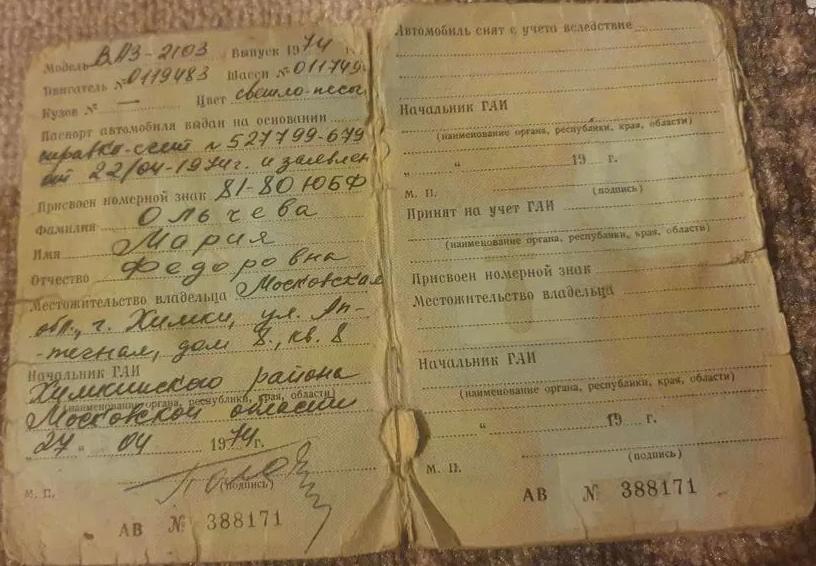 Модель ВАЗ-2103 Выпуск 1974 г.
Двигатель № 0119483 Шасси № 011749
Кузов № — Цвет светло-песо
Паспорт автомобиля выдан на основании
справка-счет № 527799-679
от 22/04-1974г. и заявлен
Присвоен номерной знак 81-80 ЮБФ
Фамилия Ольчева
Имя Мария
Отчество Федоровна
Местожительство владельца Московская
обл., г. Химки, ул. Ап-
-течная, дом 8., кв. 8
Начальник ГАИ
Химкинского района
(наименование органа, республики, края, области)
Московской области
27 " 04 1974г.
(подпись)
М. П.
АВ № 388171
Автомобиль снят с учета вследствие
Начальник ГАИ
(наименование органа, республики, края, области)
" " 19 г.
М. П. (подпись)
Принят на учет ГАИ
(наименование органа, республики, края, области)
Присвоен номерной знак
Местожительство владельца
Начальник ГАИ
(наименование органа, республики, края, области)
" 19 г.
(подпись)
М. П.
АВ № 388171